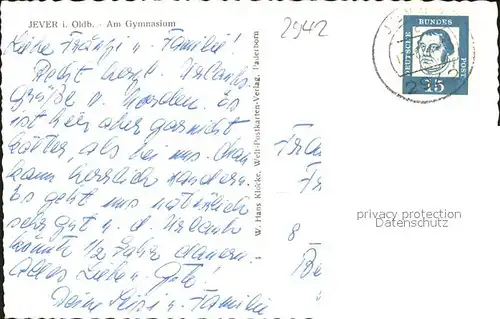 JEVER i. Oldb. - Am Gymnasium
2942
Liebe Franzi u. Familie!
Recht herzl. Urlaubs-
grüße v. Norden. Es
ist hier aber garnicht
kälter als bei uns. Man
kann herrlich wandern.
Es geht uns natürlich
sehr gut u. d. Urlaub
könnte 1/2 Jahr dauern.
Alles Liebe u. Gute!
Deine u. Familie
W. Hans Klocke, Welt-Postkarten-Verlag, Paderborn
DEUTSCHE BUNDES POST
15
8
privacy protection
Datenschutz